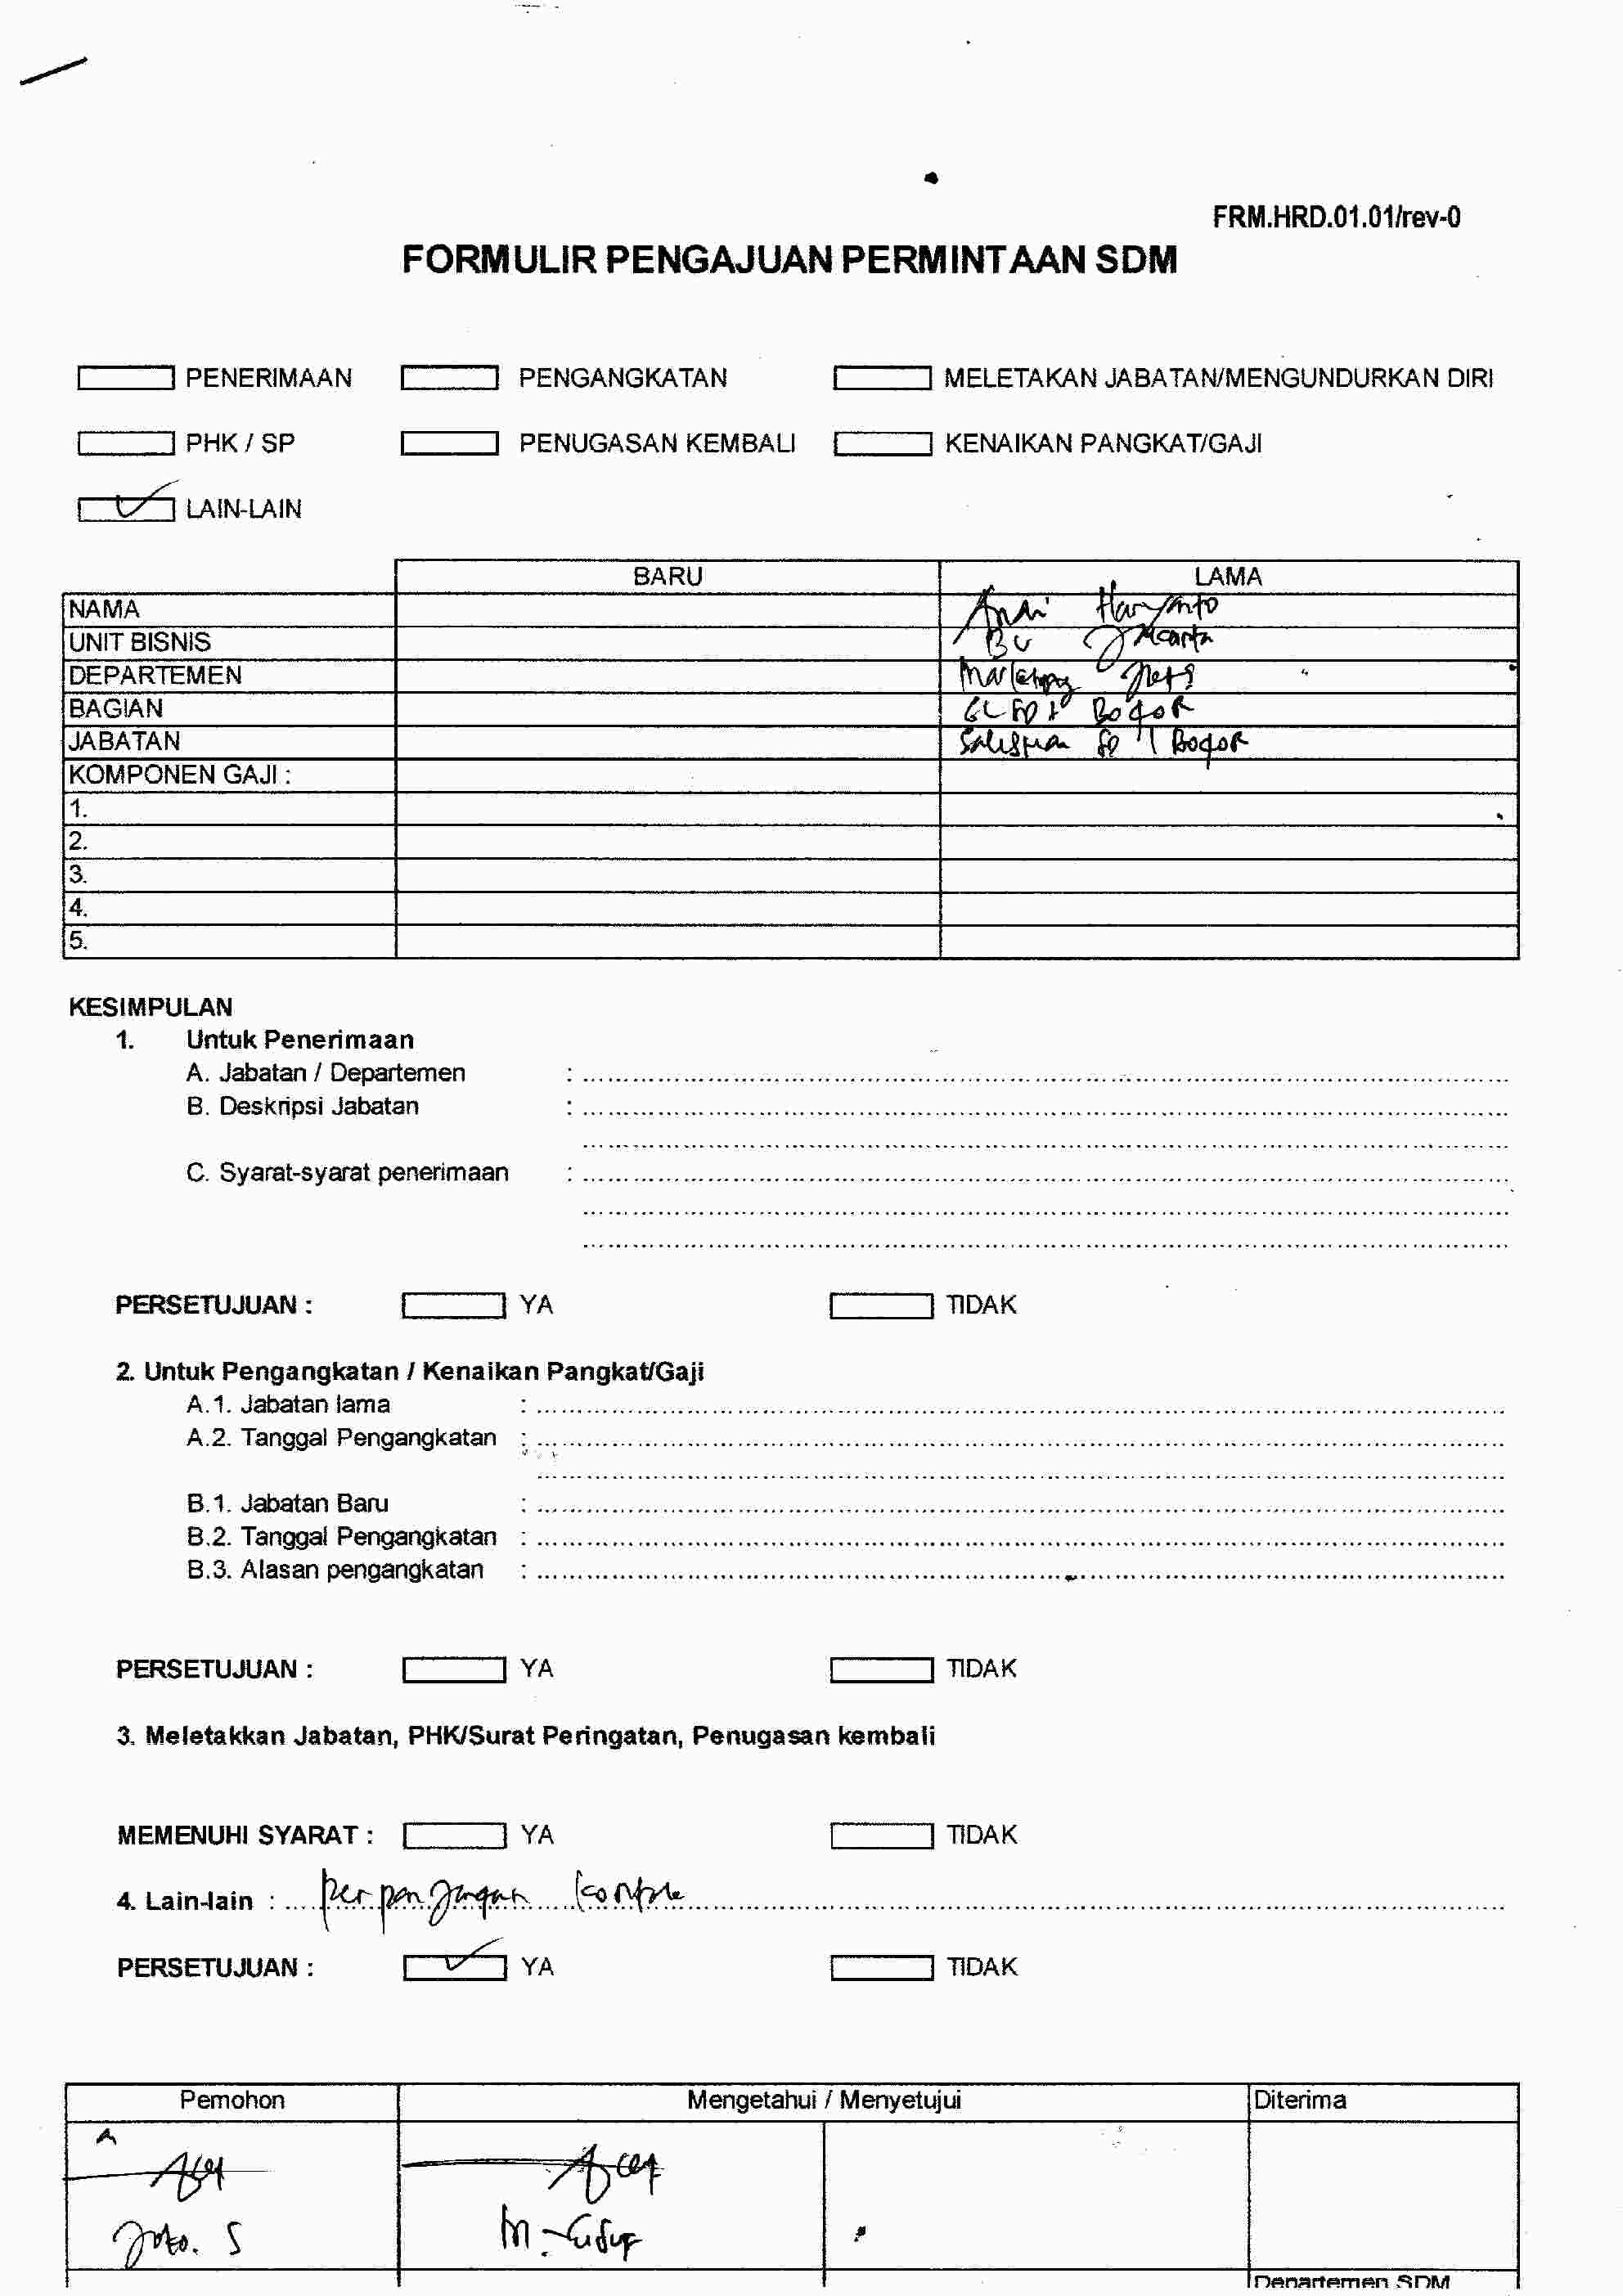 FRM.HRD.01.01/rev-0
FORMULIR PENGAJUAN PERMINTAAN SDM
PENERIMAAN PENGANGKATAN MELETAKAN JABATAN/MENGUNDURKAN DIRI
PHK / SP PENUGASAN KEMBALI KENAIKAN PANGKAT/GAJI
LAIN-LAIN
BARU LAMA
NAMA Andi Haryanto
UNIT BISNIS BU Jakarta
DEPARTEMEN Marketing
BAGIAN Bogor
JABATAN Salesman Bogor
KOMPONEN GAJI :
1.
2.
3.
4.
5.
KESIMPULAN
1. Untuk Penerimaan
A. Jabatan / Departemen :
B. Deskripsi Jabatan :
C. Syarat-syarat penerimaan :
PERSETUJUAN : YA TIDAK
2. Untuk Pengangkatan / Kenaikan Pangkat/Gaji
A.1. Jabatan lama :
A.2. Tanggal Pengangkatan :
B.1. Jabatan Baru :
B.2. Tanggal Pengangkatan :
B.3. Alasan pengangkatan :
PERSETUJUAN : YA TIDAK
3. Meletakkan Jabatan, PHK/Surat Peringatan, Penugasan kembali
MEMENUHI SYARAT : YA TIDAK
4. Lain-lain : Perpanjangan
PERSETUJUAN : YA TIDAK
Pemohon Mengetahui / Menyetujui Diterima
Joko. S
Departemen SDM